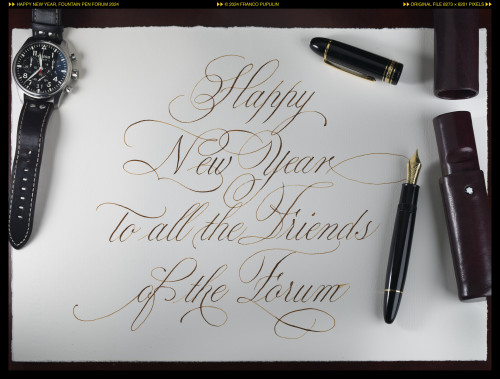 HAPPY NEW YEAR, FOUNTAIN PEN FORUM 2024
© 2024 FRANCO PUPULIN
ORIGINAL FILE 6273 × 8201 PIXELS
Happy
New Year
To all the Friends
of the Forum